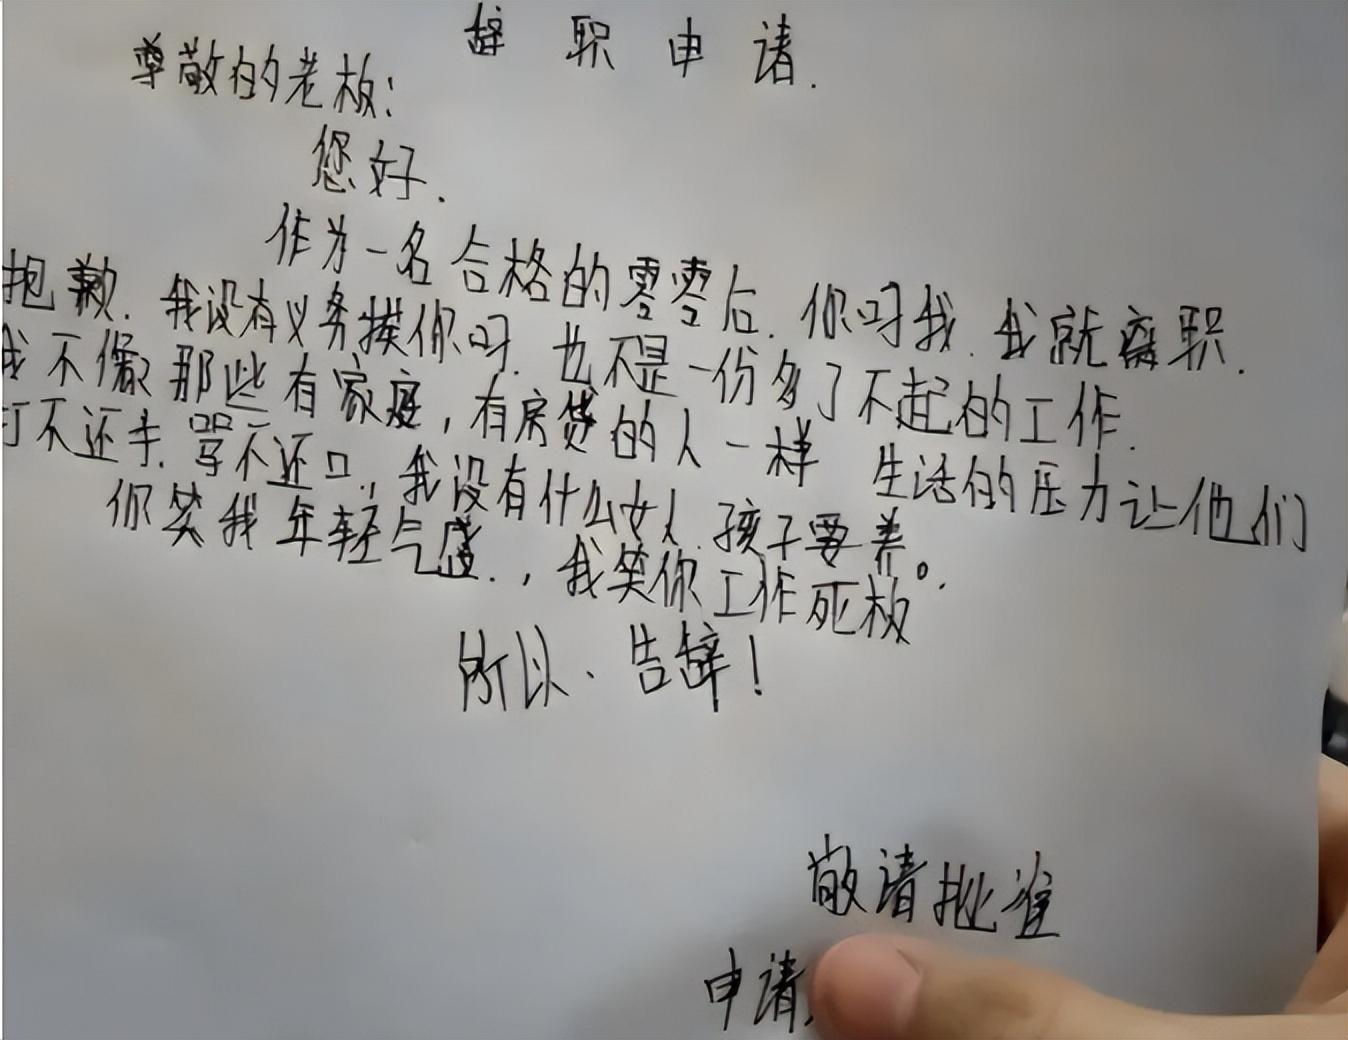 辞职申请.
尊敬的老板：
您好.
作为一名合格的零零后. 你叼我. 我就离职.
抱歉. 我没有义务挨你叼. 也不是一份多了不起的工作.
我不像那些有家庭，有房贷的人一样 生活的压力让他们
打不还手. 骂不还口，我没有什么女人. 孩子要养。
你笑我年轻气盛.，我笑你工作死板.
所以、告辞！
敬请批准
申请